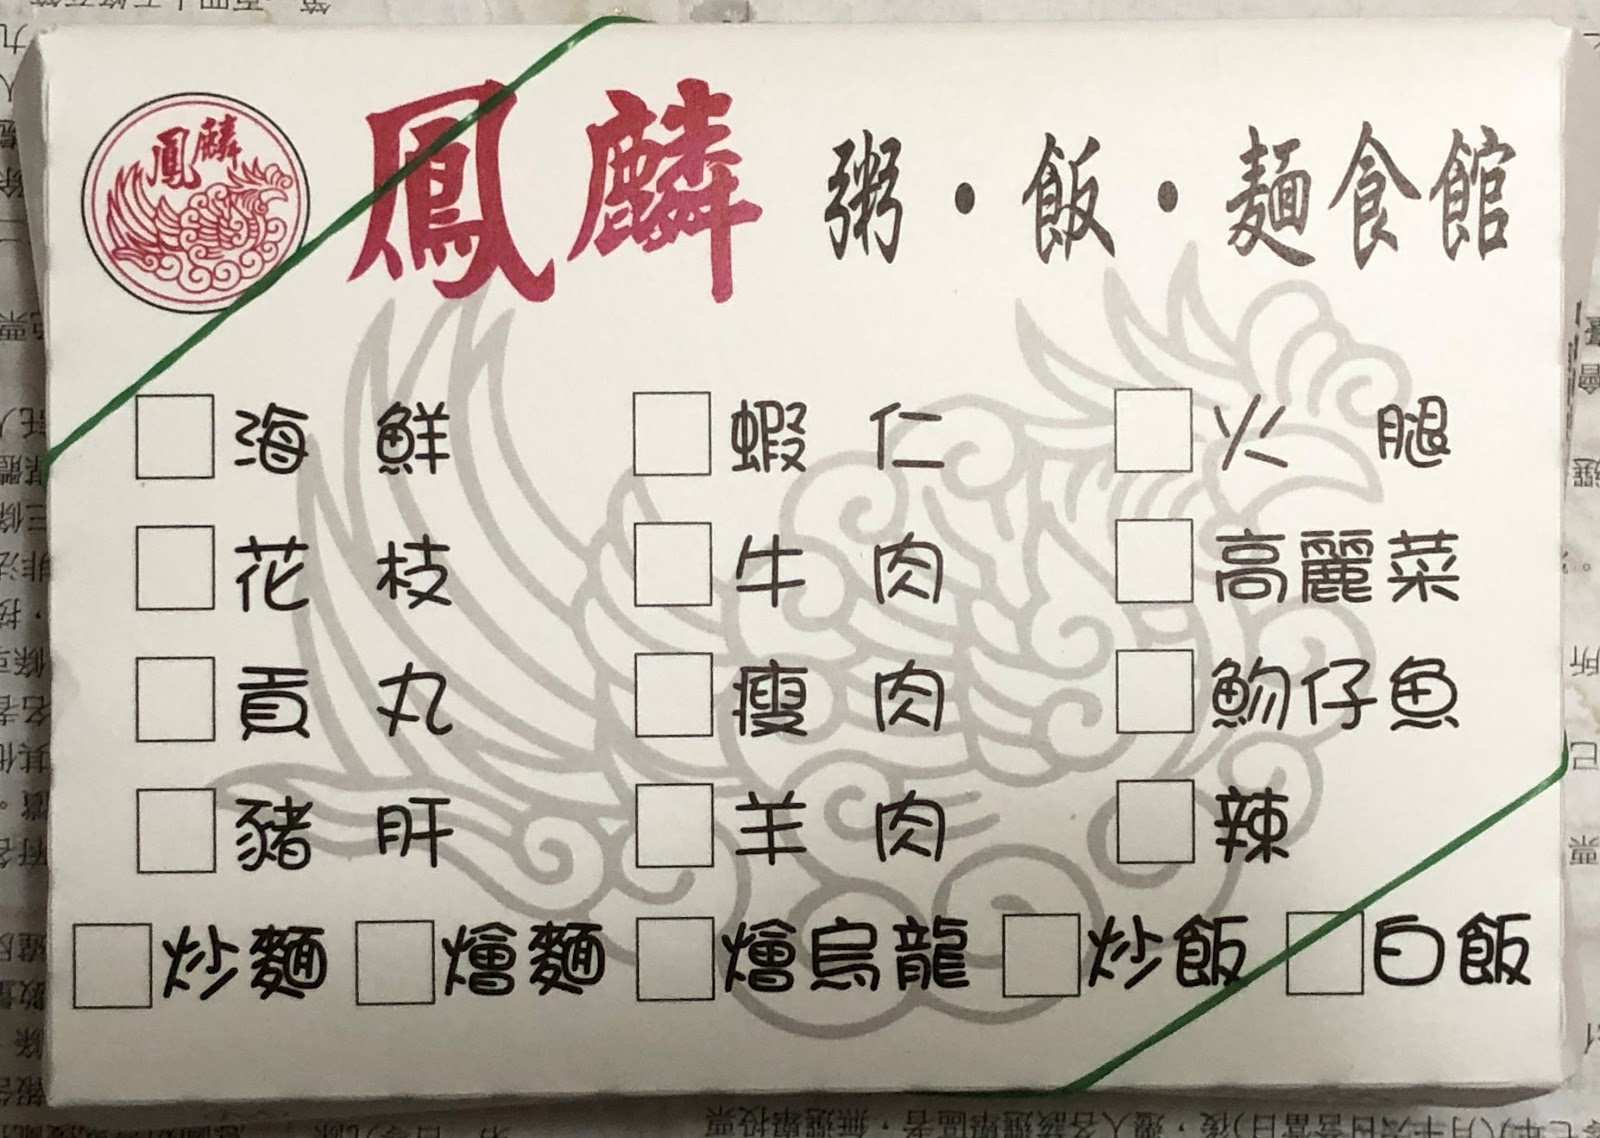 鳳麟
鳳麟 粥・飯・麵食館
海鮮 蝦仁 火腿
花枝 牛肉 高麗菜
貢丸 瘦肉 魩仔魚
豬肝 羊肉 辣
炒麵 燴麵 燴烏龍 炒飯 白飯